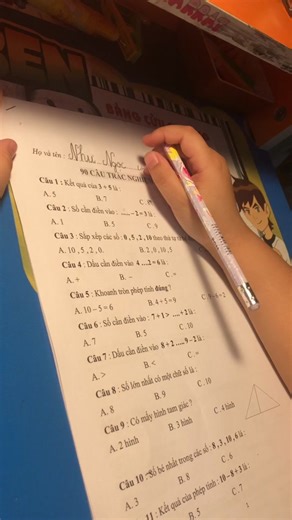 BEN
BẢNG CỬU
Họ và tên : Như Ngọc
90 CÂU TRẮC NGHIỆM
Câu 1 : Kết quả của 3 + 5 là :
A. 5 B. 7
Câu 2 : Số cần điền vào : ..... - 2 = 3 là :
A. 1 B. 5 C. 9
Câu 3 : Sắp xếp các số : 0 , 5 , 2 , 10 theo thứ tự
A. 10 , 5 , 2 , 0. B. 2 , 0 , 10 , 5
Câu 4 : Dấu cần điền vào 4 ....2 = 6 là :
A. + B. – C. =
Câu 5 : Khoanh tròn phép tính đúng ?
A. 10 – 5 = 6 B. 4 + 5 = 9
Câu 6 : Số cần điền vào : 7 + 1 > .....+ 2 là :
A. 7 B. 5 C. 10
Câu 7 : Dấu cần điền vào 8 + 2 .... 9 – 2 là :
A. > B. < C. =
Câu 8 : Số lớn nhất có một chữ số là :
A. 8 B. 9 C. 10
Câu 9 : Có mấy hình tam giác ?
A. 2 hình B. 3 hình C. 4 hình
Câu 10 : Số bé nhất trong các số : 8 , 3 , 10 , 6 là :
A. 3 B. 8 C. 6
11 : Kết quả của phép tính : 10 – 8 + 3 là :
B. 5 C. 7